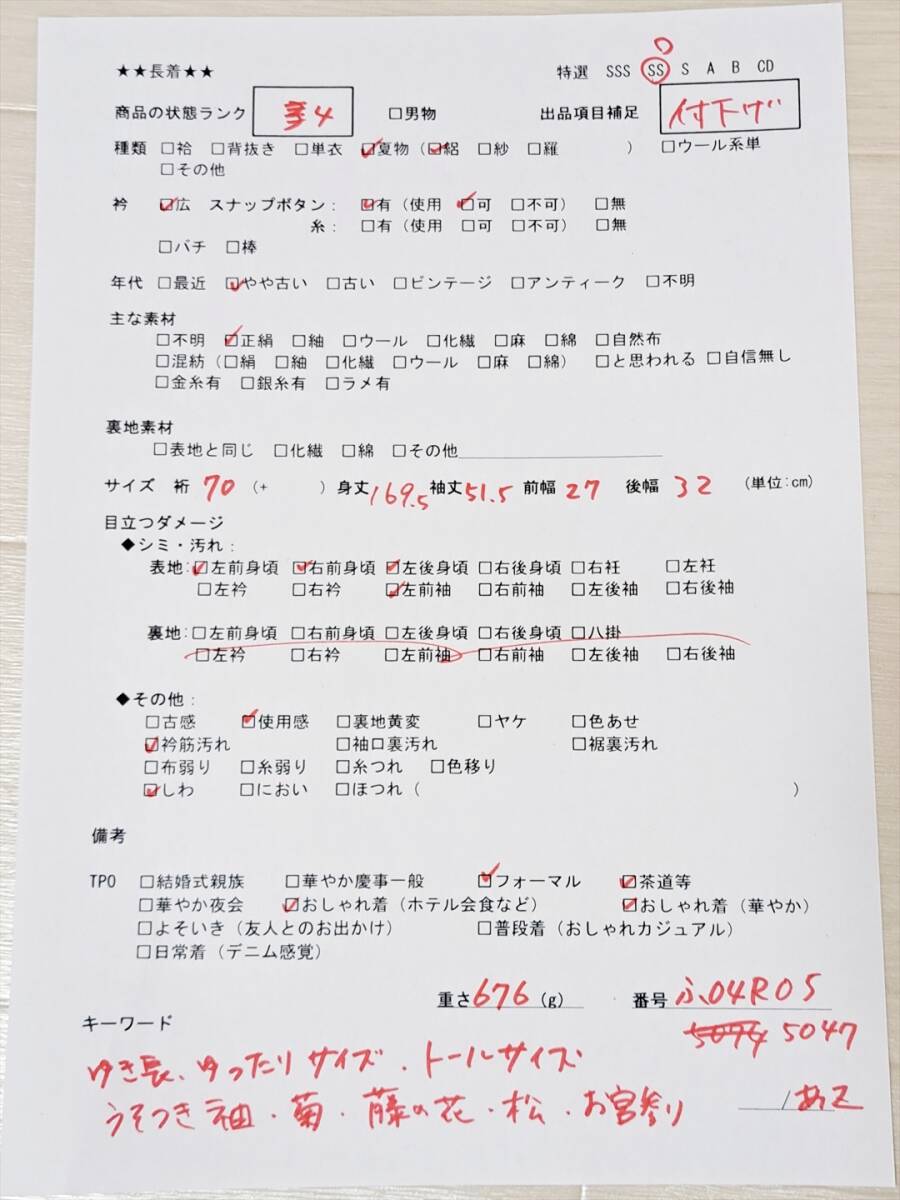 ★★長着★★ 特選 SSS SS S A B CD
商品の状態ランク 4 □男物 出品項目補足 付下げ
種類 □袷 □背抜き □単衣 ☑夏物（☑絽 □紗 □羅 ） □ウール系単
□その他
衿 ☑広 スナップボタン： ☑有（使用 ☑可 □不可） □無
糸：□有（使用 □可 □不可） □無
□バチ □棒
年代 □最近 ☑やや古い □古い □ビンテージ □アンティーク □不明
主な素材
□不明 ☑正絹 □紬 □ウール □化繊 □麻 □綿 □自然布
□混紡（□絹 □紬 □化繊 □ウール □麻 □綿） □と思われる □自信無し
□金糸有 □銀糸有 □ラメ有
裏地素材
□表地と同じ □化繊 □綿 □その他
サイズ 裄 70 （+ ）身丈 169.5 袖丈 51.5 前幅 27 後幅 32 （単位:cm）
目立つダメージ
◆シミ・汚れ：
表地：☑左前身頃 ☑右前身頃 ☑左後身頃 □右後身頃 □右衽 □左衽
□左衿 □右衿 ☑左前袖 □右前袖 □左後袖 □右後袖
裏地：□左前身頃 □右前身頃 □左後身頃 □右後身頃 □八掛
□左衿 □右衿 □左前袖 □右前袖 □左後袖 □右後袖
◆その他：
□古感 ☑使用感 □裏地黄変 □ヤケ □色あせ
☑衿筋汚れ □袖口裏汚れ □裾裏汚れ
□布弱り □糸弱り □糸つれ □色移り
☑しわ □におい □ほつれ（ ）
備考
TPO □結婚式親族 □華やか慶事一般 ☑フォーマル ☑茶道等
□華やか夜会 ☑おしゃれ着（ホテル会食など） ☑おしゃれ着（華やか）
□よそいき（友人とのお出かけ） □普段着（おしゃれカジュアル）
□日常着（デニム感覚）
重さ 676 (g) 番号 ふ04R05
5047
キーワード
ゆき長、ゆったりサイズ・トールサイズ
うそつき袖・菊・藤の花・松・お宮参り /